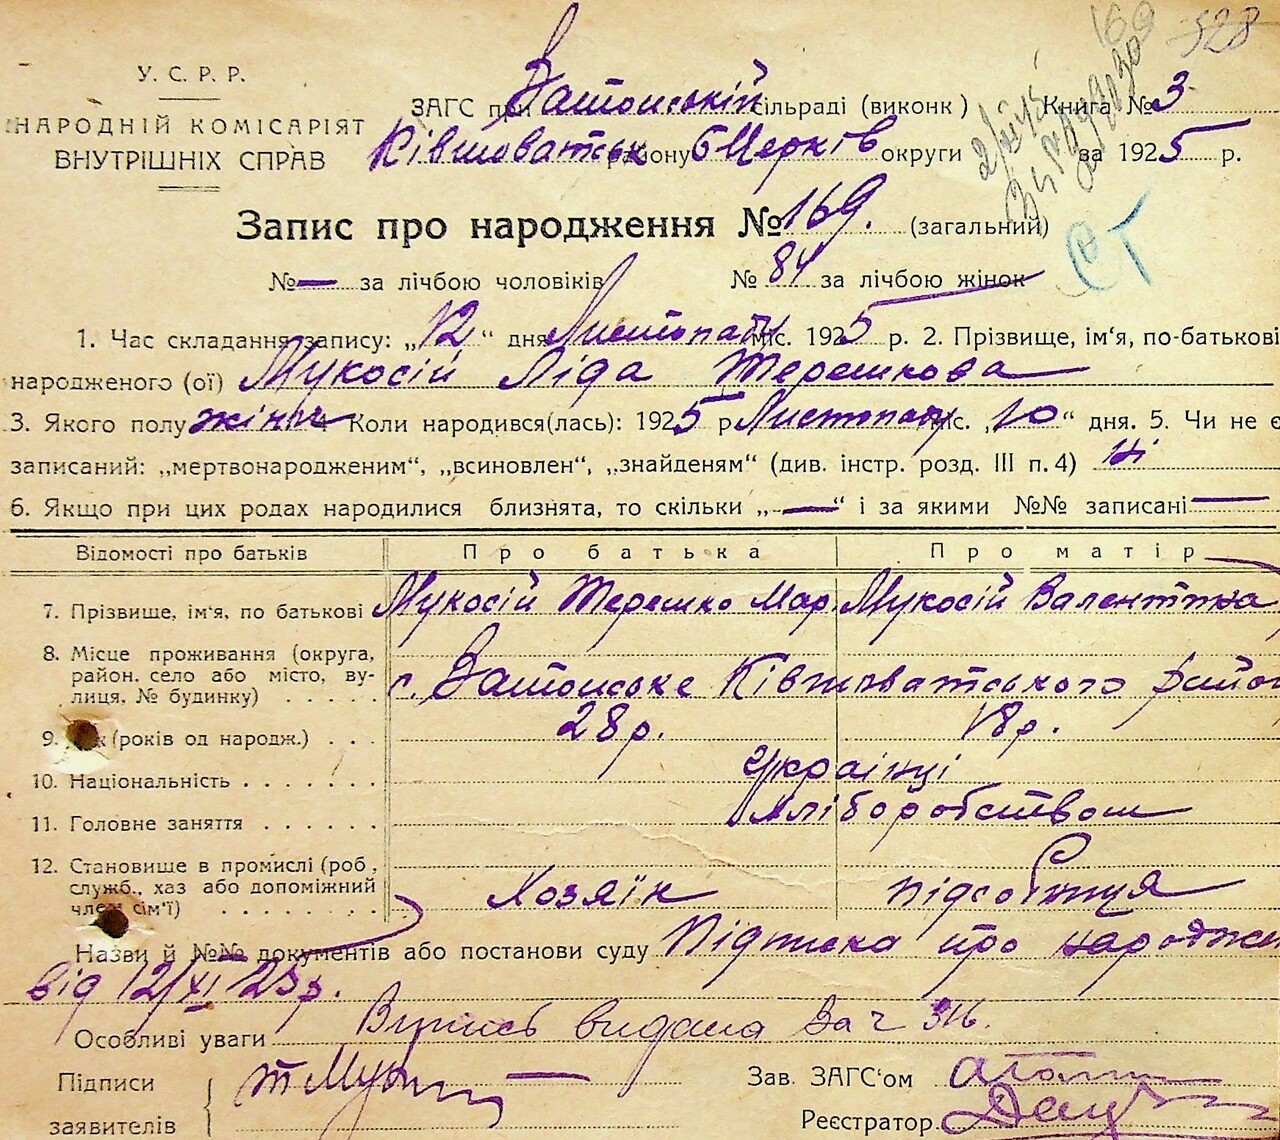 169 528
У. С. Р. Р.
НАРОДНІЙ КОМІСАРІЯТ
ВНУТРІШНІХ СПРАВ
ЗАГС при Затонській сільраді (виконк) Книга № 3
Ківшоватськ району БЦерків округи за 1925 р.
Запис про народження № 169. (загальний)
№ — за лічбою чоловіків № 84 за лічбою жінок
СТ
1. Час складання запису: „12“ дня Листопаду міс. 1925 р. 2. Прізвище, ім‘я, по-батькові
народженого (ої) Мукосій Ліда Терешкова
3. Якого полу жіноч 4 Коли народився(лась): 1925 р Листопаду міс. „10“ дня. 5. Чи не є
записаний: „мертвонародженим“, „всиновлен“, „знайденям“ (див. інстр. розд. III п. 4) ні
6. Якщо при цих родах народилися близнята, то скільки „—“ і за якими №№ записані —
Відомості про батьків Про батька Про матір
7. Прізвище, ім‘я, по батькові Мукосій Терешко Мар. Мукосій Валентина
8. Місце проживання (округа,
район. село або місто, ву-
лиця, № будинку) с. Затонське Ківшоватського район
9. (років од народж.) 28 р. 18 р.
10. Національність Українці
11. Головне заняття Хліборобством
12. Становище в промислі (роб,
служб., хаз або допоміжний
член сім‘ї) Хозяїн підсобниця
Назви й №№ документів або постанови суду Підписка про народжен
від 12/XI 25 р.
Особливі уваги Випись видана за ч 316.
Підписи
заявителів Т Мук
Зав. ЗАГС‘ом
Реєстратор